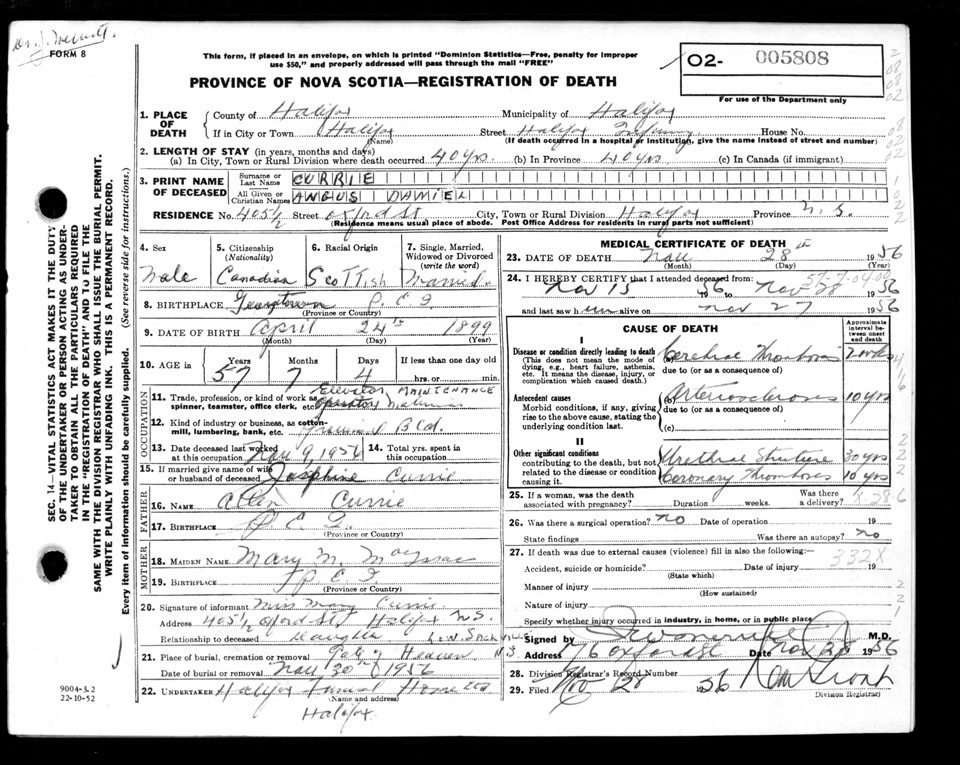 FORM 8
This form, if placed in an envelope, on which is printed "Dominion Statistics—Free, penalty for improper
use $50," and properly addressed will pass through the mail "FREE"
PROVINCE OF NOVA SCOTIA—REGISTRATION OF DEATH
02- 005808
For use of the Department only
1. PLACE OF DEATH
County of Halifax Municipality of Halifax
If in City or Town Halifax Street Halifax Infirmary House No.
(Name) (If death occurred in a hospital or institution, give the name instead of street and number)
2. LENGTH OF STAY (in years, months and days)
(a) In City, Town or Rural Division where death occurred 40 yrs. (b) In Province 40 yrs. (c) In Canada (if immigrant)
3. PRINT NAME OF DECEASED
Surname or Last Name CURRIE
All Given or Christian Names ANGUS DANIEL
RESIDENCE No. 405½ Street Oxford St City, Town or Rural Division Halifax Province N.S.
(Residence means usual place of abode. Post Office Address for residents in rural parts not sufficient)
4. Sex Male
5. Citizenship (Nationality) Canadian
6. Racial Origin Scottish
7. Single, Married, Widowed or Divorced (write the word) Married
8. BIRTHPLACE Georgetown P.E.I.
(Province or Country)
9. DATE OF BIRTH April 24th 1899
(Month) (Day) (Year)
10. AGE in Years 57 Months 7 Days 4 If less than one day
hrs. or min.
OCCUPATION
11. Trade, profession, or kind of work as spinner, teamster, office clerk, etc. Elevator Operator MAINTENANCE
12. Kind of industry or business, as cotton-mill, lumbering, bank, etc. Bld.
13. Date deceased last worked at this occupation Nov 9, 1956
14. Total yrs. spent in this occupation
15. If married give name of wife or husband of deceased Josephine Currie
FATHER
16. NAME Allen Currie
17. BIRTHPLACE P.E.I.
(Province or Country)
MOTHER
18. MAIDEN NAME Mary M.
19. BIRTHPLACE P.E.I.
(Province or Country)
20. Signature of informant Miss Mary Currie
Address 405½ Oxford St Halifax N.S.
Relationship to deceased Daughter
LOW. SACKVILLE
21. Place of burial, cremation or removal Gate of Heaven N.S.
Date of burial or removal Nov 30th 1956
22. UNDERTAKER Halifax Funeral Home Ltd
(Name and address)
Halifax.
MEDICAL CERTIFICATE OF DEATH
23. DATE OF DEATH Nov 28th 1956
(Month) (Day) (Year)
24. I HEREBY CERTIFY that I attended deceased from:
Nov 15 56 to Nov 28 1956
and last saw him alive on Nov 27 1956
CAUSE OF DEATH
Approximate interval between onset and death
I
Disease or condition directly leading to death
(This does not mean the mode of dying, e.g., heart failure, asthenia, etc. It means the disease, injury, or complication which caused death.)
(a) Cerebral Thrombosis 2 wks
due to (or as a consequence of)
Antecedent causes
Morbid conditions, if any, giving rise to the above cause, stating the underlying condition last.
(b) Arteriosclerosis 10 yrs
due to (or as a consequence of)
(c)
II
Other significant conditions
contributing to the death, but not related to the disease or condition causing it.
Urethral Stricture 30 yrs
Coronary Thrombosis 10 yrs
25. If a woman, was the death associated with pregnancy? Duration weeks. Was there a delivery?
26. Was there a surgical operation? no Date of operation 19
State findings Was there an autopsy? no
27. If death was due to external causes (violence) fill in also the following:—
332X
Accident, suicide or homicide? Date of injury 19
(State which)
Manner of injury
(How sustained)
Nature of injury
Specify whether injury occurred in industry, in home, or in public place
Signed by M.D.
Address 76 Oxford St Date Nov 28 1956
28. Division Registrar's Record Number
29. Filed Nov 28 1956
Division Registrar
SEC. 14—VITAL STATISTICS ACT MAKES IT THE DUTY
OF THE UNDERTAKER OR PERSON ACTING AS UNDER-
TAKER TO OBTAIN ALL THE PARTICULARS REQUIRED
IN THE "REGISTRATION OF DEATH" AND TO FILE THE
SAME WITH THE DIVISION REGISTRAR WHO SHALL ISSUE THE BURIAL PERMIT.
WRITE PLAINLY WITH UNFADING INK. THIS IS A PERMANENT RECORD.
Every item of information should be carefully supplied. (See reverse side for instructions.)
9004-3.2
22-10-52